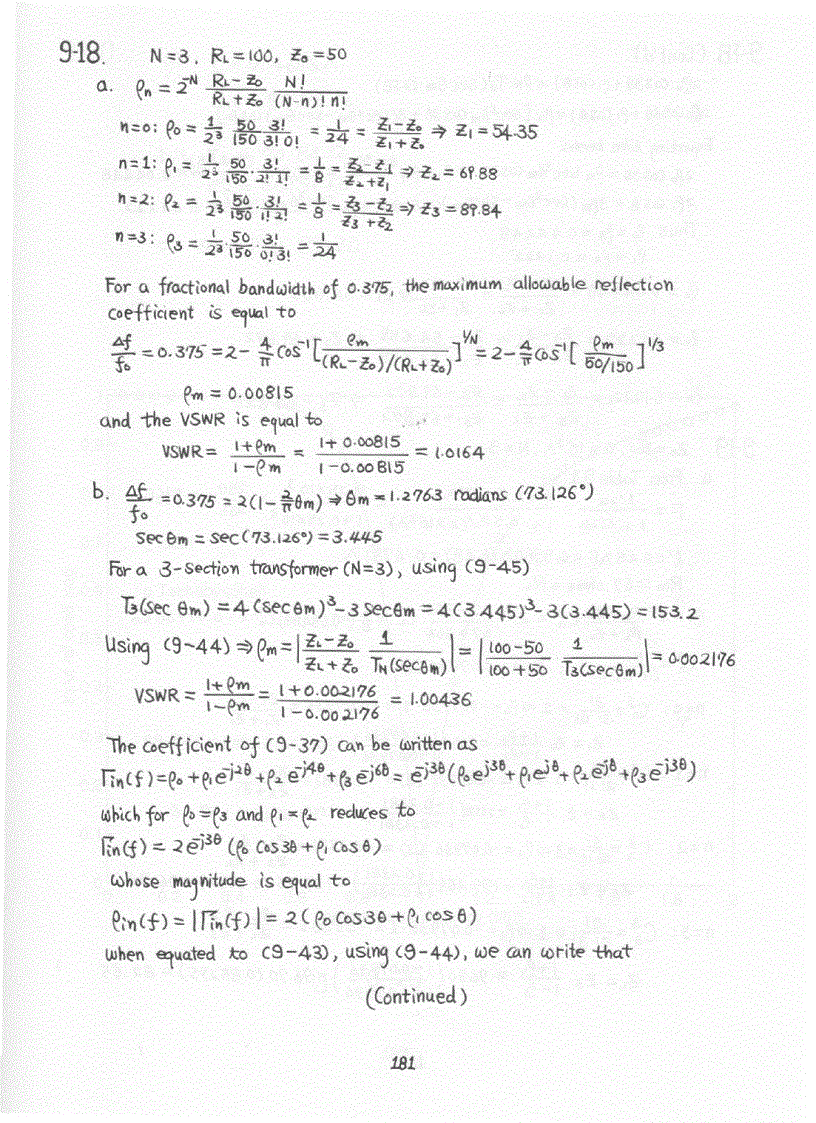 9-18. N=3, RL=100, Z0=50
a. ρn = 2^-N (RL-Z0)/(RL+Z0) N!/((N-n)! n!)
n=0: ρ0 = 1/2^3 50/150 3!/(3! 0!) = 1/24 = (Z1-Z0)/(Z1+Z0) ⇒ Z1=54.35
n=1: ρ1 = 1/2^3 50/150 3!/(2! 1!) = 1/8 = (Z2-Z1)/(Z2+Z1) ⇒ Z2=69.88
n=2: ρ2 = 1/2^3 50/150 3!/(1! 2!) = 1/8 = (Z3-Z2)/(Z3+Z2) ⇒ Z3=89.84
n=3: ρ3 = 1/2^3 · 50/150 · 3!/(0! 3!) = 1/24
For a fractional bandwidth of 0.375, the maximum allowable reflection
coefficient is equal to
Δf/f0 = 0.375 = 2 - 4/π cos^-1 [ρm/((RL-Z0)/(RL+Z0))]^1/N = 2 - 4/π cos^-1 [ρm/(50/150)]^1/3
ρm = 0.00815
and the VSWR is equal to
VSWR = (1+ρm)/(1-ρm) = (1+0.00815)/(1-0.00815) = 1.0164
b. Δf/f0 = 0.375 = 2(1 - 2/π θm) ⇒ θm = 1.2763 radians (73.126°)
Sec θm = sec(73.126°) = 3.445
For a 3-section transformer (N=3), using (9-45)
T3(sec θm) = 4 (sec θm)^3 - 3 sec θm = 4(3.445)^3 - 3(3.445) = 153.2
Using (9-44) ⇒ ρm = |(ZL-Z0)/(ZL+Z0) 1/TN(sec θm)| = |(100-50)/(100+50) 1/T3(sec θm)| = 0.002176
VSWR = (1+ρm)/(1-ρm) = (1+0.002176)/(1-0.002176) = 1.00436
The coefficient of (9-37) can be written as
Γin(f) = ρ0 + ρ1 e^-j2θ + ρ2 e^-j4θ + ρ3 e^-j6θ = e^-j3θ (ρ0 e^j3θ + ρ1 e^jθ + ρ2 e^-jθ + ρ3 e^-j3θ)
which for ρ0=ρ3 and ρ1=ρ2 reduces to
Γin(f) = 2e^-j3θ (ρ0 cos 3θ + ρ1 cos θ)
whose magnitude is equal to
ρin(f) = |Γin(f)| = 2 (ρ0 cos 3θ + ρ1 cos θ)
when equated to (9-43), using (9-44), we can write that
(Continued)
181